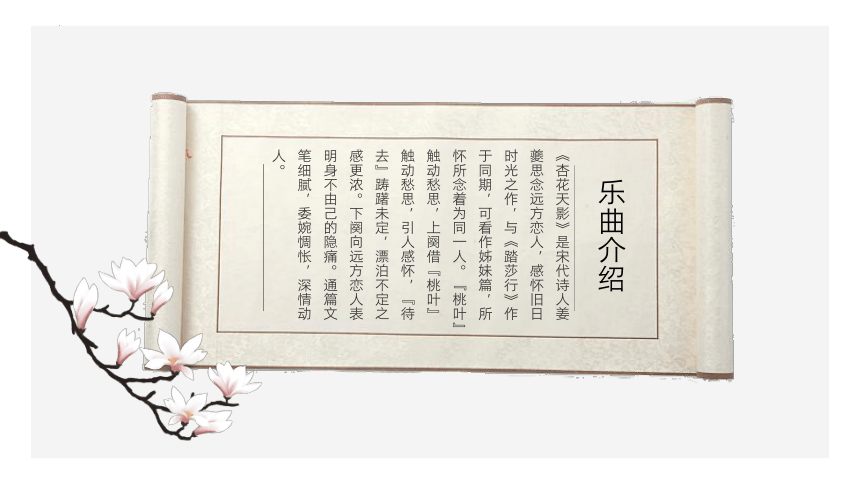 乐曲介绍
《杏花天影》是宋代诗人姜
夔思念远方恋人，感怀旧日
时光之作，与《踏莎行》作
于同期，可看作姊妹篇，所
怀所念着为同一人。『桃叶』
触动愁思，上阕借『桃叶』
触动愁思，引人感怀，『待
去』踌躇未定，漂泊不定之
感更浓。下阕向远方恋人表
明身不由己的隐痛。通篇文
笔细腻，委婉惆怅，深情动
人。